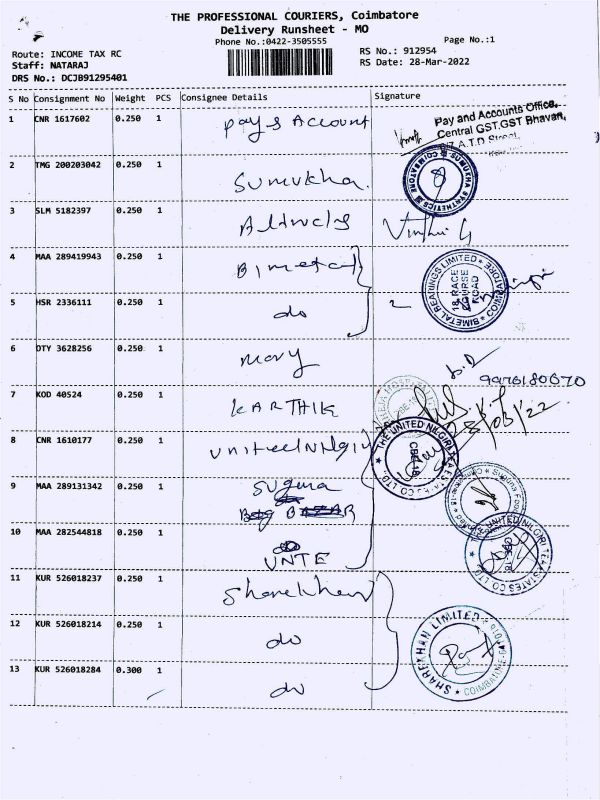 THE PROFESSIONAL COURIERS, Coimbatore
Delivery Runsheet - MO
Phone No.:0422-3505555 Page No.:1
Route: INCOME TAX RC RS No.: 912954
Staff: NATARAJ RS Date: 28-Mar-2022
DRS No.: DCJB91295401
S No Consignment No Weight PCS Consignee Details Signature
1 CNR 1617602 0.250 1 Pay & Account
Pay and Accounts Office,
Central GST.GST Bhavan,
A.T.D Street,
2 TMG 200203042 0.250 1 Sumukha.
SUMUKHA SYNTHETICS COIMBATORE
3 SLM 5182397 0.250 1
4 MAA 289419943 0.250 1 Bimetal
BIMETAL BEARINGS LIMITED COIMBATORE
18 RACE COURSE ROAD
5 HSR 2336111 0.250 1 do
6 OTY 3628256 0.250 1 Mary
9976180670
7 KOD 40524 0.250 1 KARTHIK
28/03/22
8 CNR 1610177 0.250 1 United Nilgiri
THE UNITED NILGIRI TEA ESTATES CO LTD.
CBE-18
9 MAA 289131342 0.250 1 Suguna
10 MAA 282544818 0.250 1 UNTE
THE UNITED NILGIRI TEA ESTATES CO LTD.
11 KUR 526018237 0.250 1 Sharekhan
12 KUR 526018214 0.250 1 do
SHAREKHAN LIMITED
COIMBATORE
13 KUR 526018284 0.300 1 do